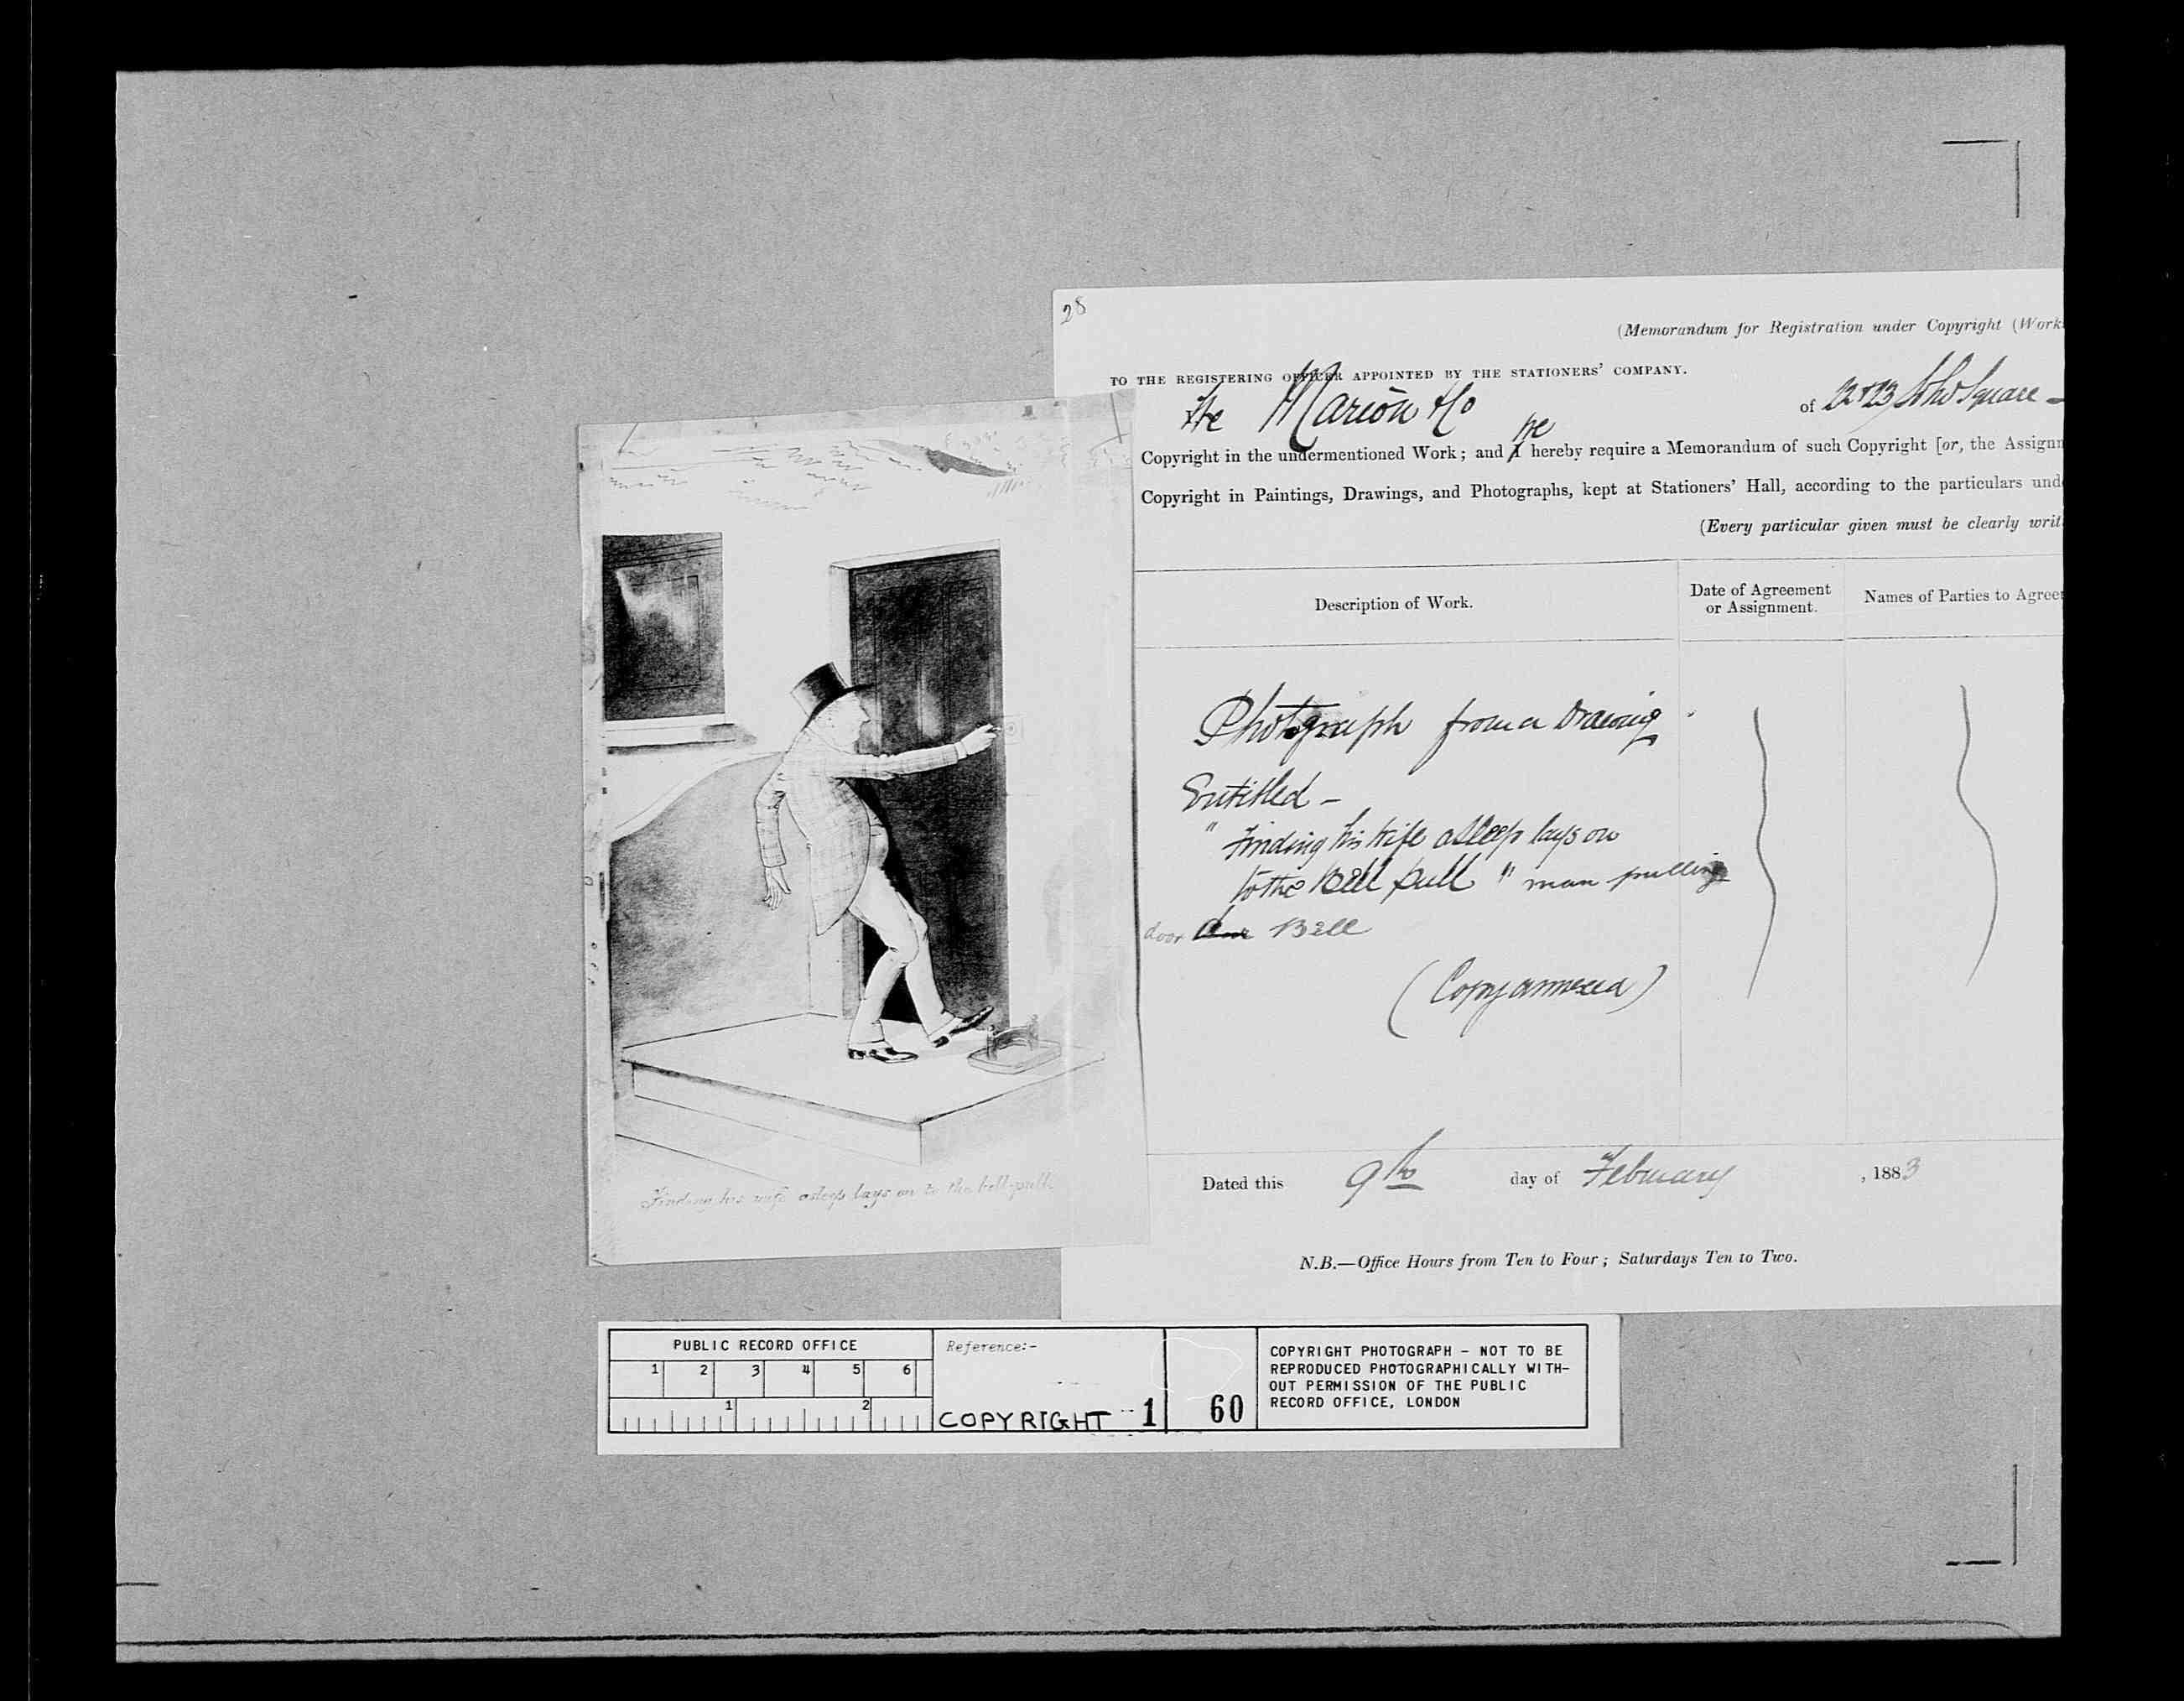 28
(Memorandum for Registration under Copyright (Work
TO THE REGISTERING OFFICER APPOINTED BY THE STATIONERS' COMPANY.
Marion & Co of 22 & 23 Soho Square
We
Copyright in the undermentioned Work; and I hereby require a Memorandum of such Copyright [or, the Assign
Copyright in Paintings, Drawings, and Photographs, kept at Stationers' Hall, according to the particulars und
(Every particular given must be clearly writ
Description of Work.
Date of Agreement
or Assignment.
Names of Parties to Agree
Photograph from a Drawing
Entitled -
" Finding his wife asleep lays on
to the Bell pull " man pulling
door Bell
(Copy annexed)
Dated this 9th day of February , 1883
N.B.—Office Hours from Ten to Four; Saturdays Ten to Two.
Finding his wife asleep lays on to the bell-pull.
PUBLIC RECORD OFFICE
1 2 3 4 5 6
1 2
Reference:-
COPYRIGHT 1 60
COPYRIGHT PHOTOGRAPH - NOT TO BE
REPRODUCED PHOTOGRAPHICALLY WITH-
OUT PERMISSION OF THE PUBLIC
RECORD OFFICE, LONDON